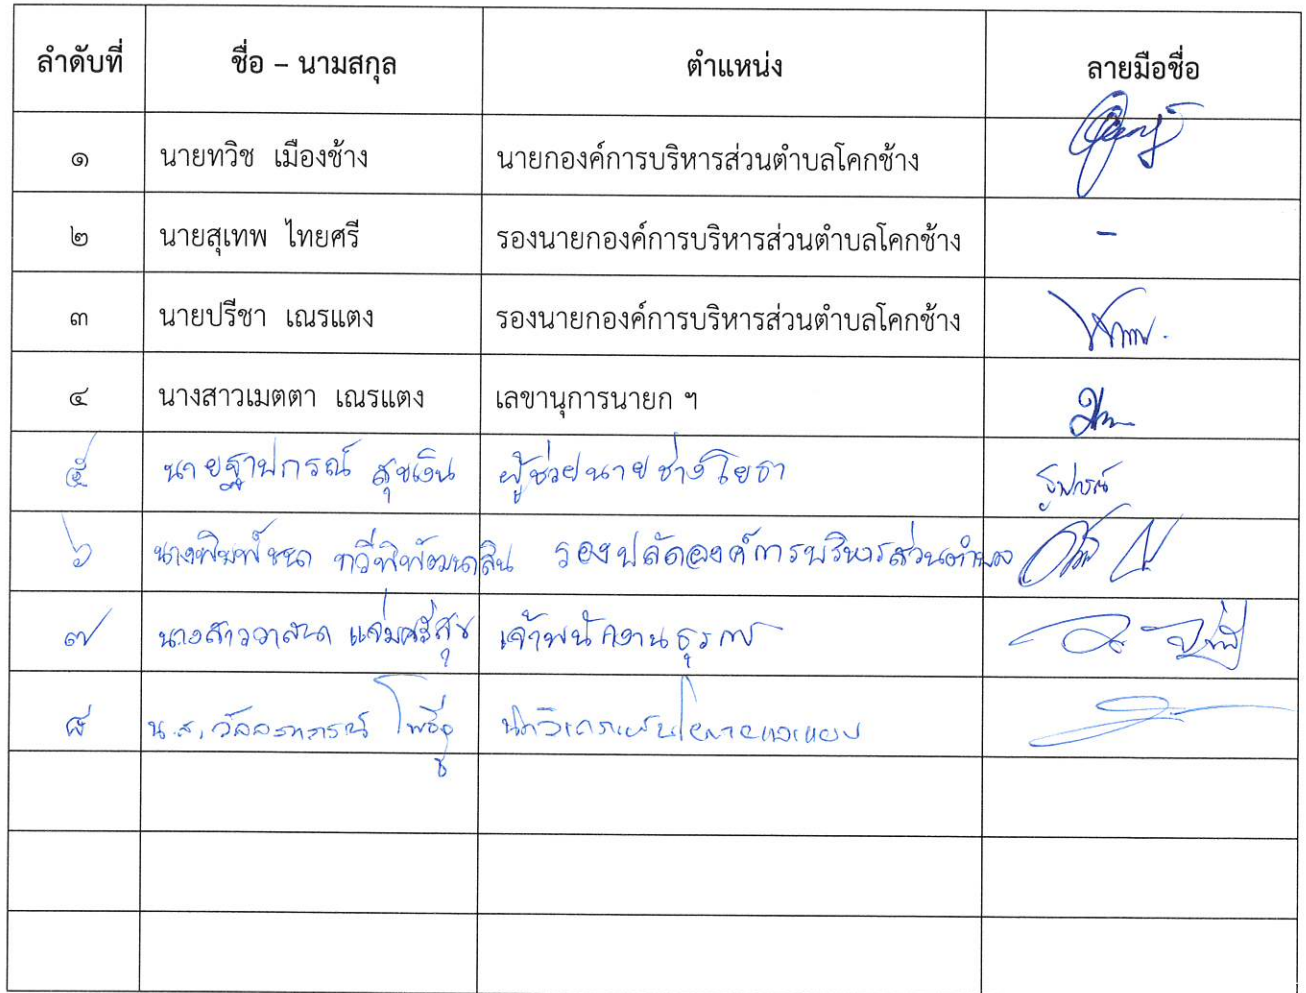 ลำดับที่ ชื่อ – นามสกุล ตำแหน่ง ลายมือชื่อ
๑ นายทวิช เมืองช้าง นายกองค์การบริหารส่วนตำบลโคกช้าง
๒ นายสุเทพ ไทยศรี รองนายกองค์การบริหารส่วนตำบลโคกช้าง -
๓ นายปรีชา เณรแตง รองนายกองค์การบริหารส่วนตำบลโคกช้าง
๔ นางสาวเมตตา เณรแตง เลขานุการนายก ฯ
๕ นายฐาปกรณ์ สุขเงิน ผู้ช่วยนายช่างโยธา
๖ รองปลัดองค์การบริหารส่วนตำบล
๗ นางสาววาสนา แจ่มศรีสุข เจ้าพนักงานธุรการ
๘ น.ส.